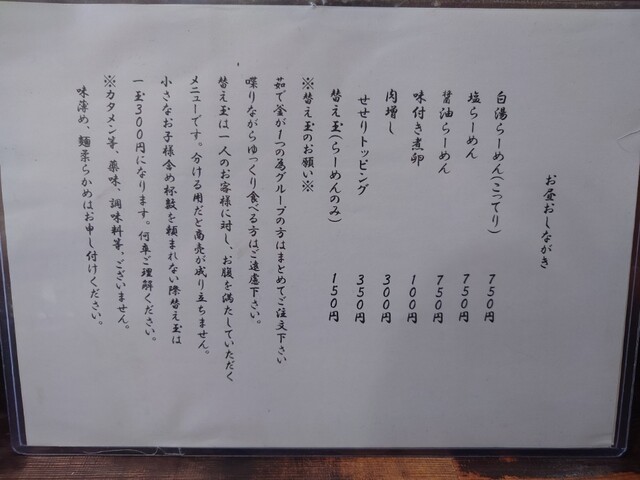 お昼おしながき
白湯らーめん(こってり) 750円
塩らーめん 750円
醤油らーめん 750円
味付き煮卵 100円
肉増し 300円
せせりトッピング 350円
替え玉(らーめんのみ) 150円
※替え玉のお願い※
茹で釜が1つの為グループの方はまとめてご注文下さい
喋りながらゆっくり食べる方はご遠慮下さい。
替え玉は一人のお客様に対し、お腹を満たしていただく
メニューです。分ける用だと商売が成り立ちません。
小さなお子様含め杯数を頼まれない際替え玉は
一玉300円になります。何卒ご理解ください。
※カタメン等、薬味、調味料等、ございません。
味薄め、麺柔らかめはお申し付けください。